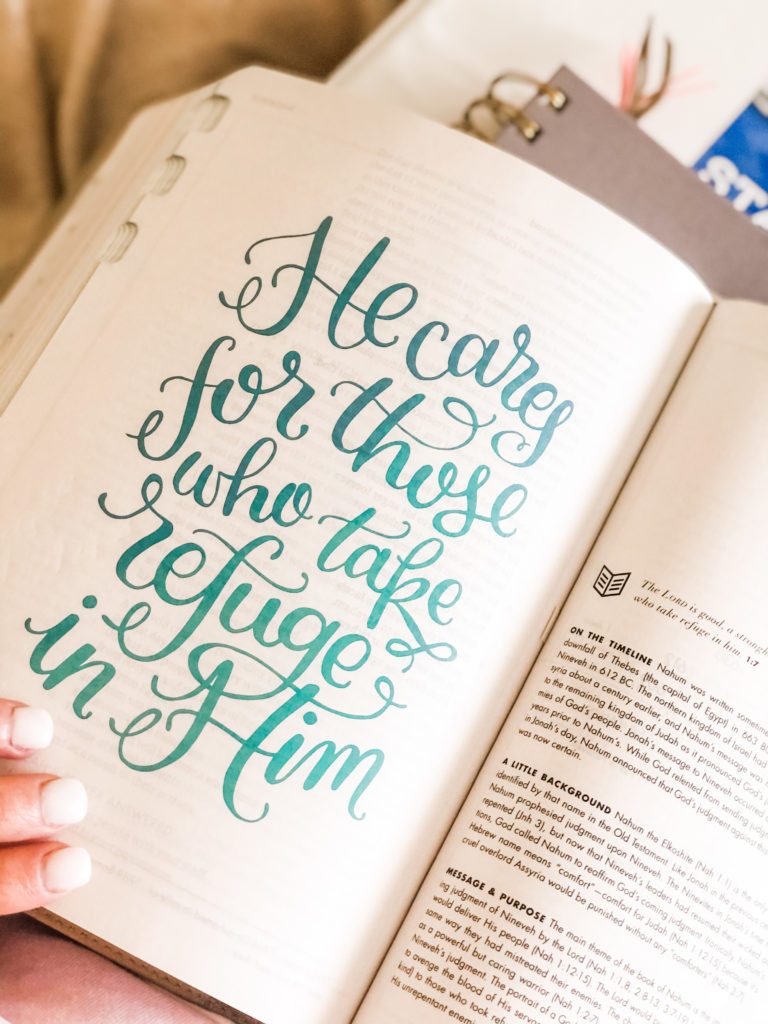 He cares
for those
who take
refuge
in Him
STA
The LORD is good, a strongh
who take refuge in him 1:7
ON THE TIMELINE Nahum was written sometime
downfall of Thebes (the capital of Egypt) in 663 BC
Nineveh in 612 BC. The northern kingdom of Israel had
syria about a century earlier, and Nahum's message was
to the remaining kingdom of Judah as it pronounced God's
mies of God's people. Jonah's message to Nineveh occurred
years prior to Nahum's. While God relented from sending judgm
in Jonah's day, Nahum announced that God's judgment against this
was now certain.
A LITTLE BACKGROUND Nahum the Elkoshite (Nah 1:1) is the only
identified by that name in the Old Testament. Like Jonah in the previous
Nahum prophesied judgment upon Nineveh. The Ninevites in Jonah's time
repented (Jnh 3), but now that Nineveh's leaders had resumed their wicked
tions, God called Nahum to reaffirm God's coming judgment. Ironically, Nahum's
Hebrew name means "comfort"—comfort for Judah (Nah 1:12-15) because its
cruel overlord Assyria would be punished without any "comforters" (Nah 3:7).
MESSAGE & PURPOSE The main theme of the book of Nahum is the
ing judgment of Nineveh by the Lord (Nah 1:1,8; 2:8-13; 3:7-19).
would deliver His people (Nah 1:12-15). The Lord would
same way they had mistreated their enemies. The
as a powerful but caring warrior (Nah 1:2,7)
Nineveh's judgment. The portrait of a G
to avenge the blood of His serva
kind) to those who took ref
His unrepentant enem